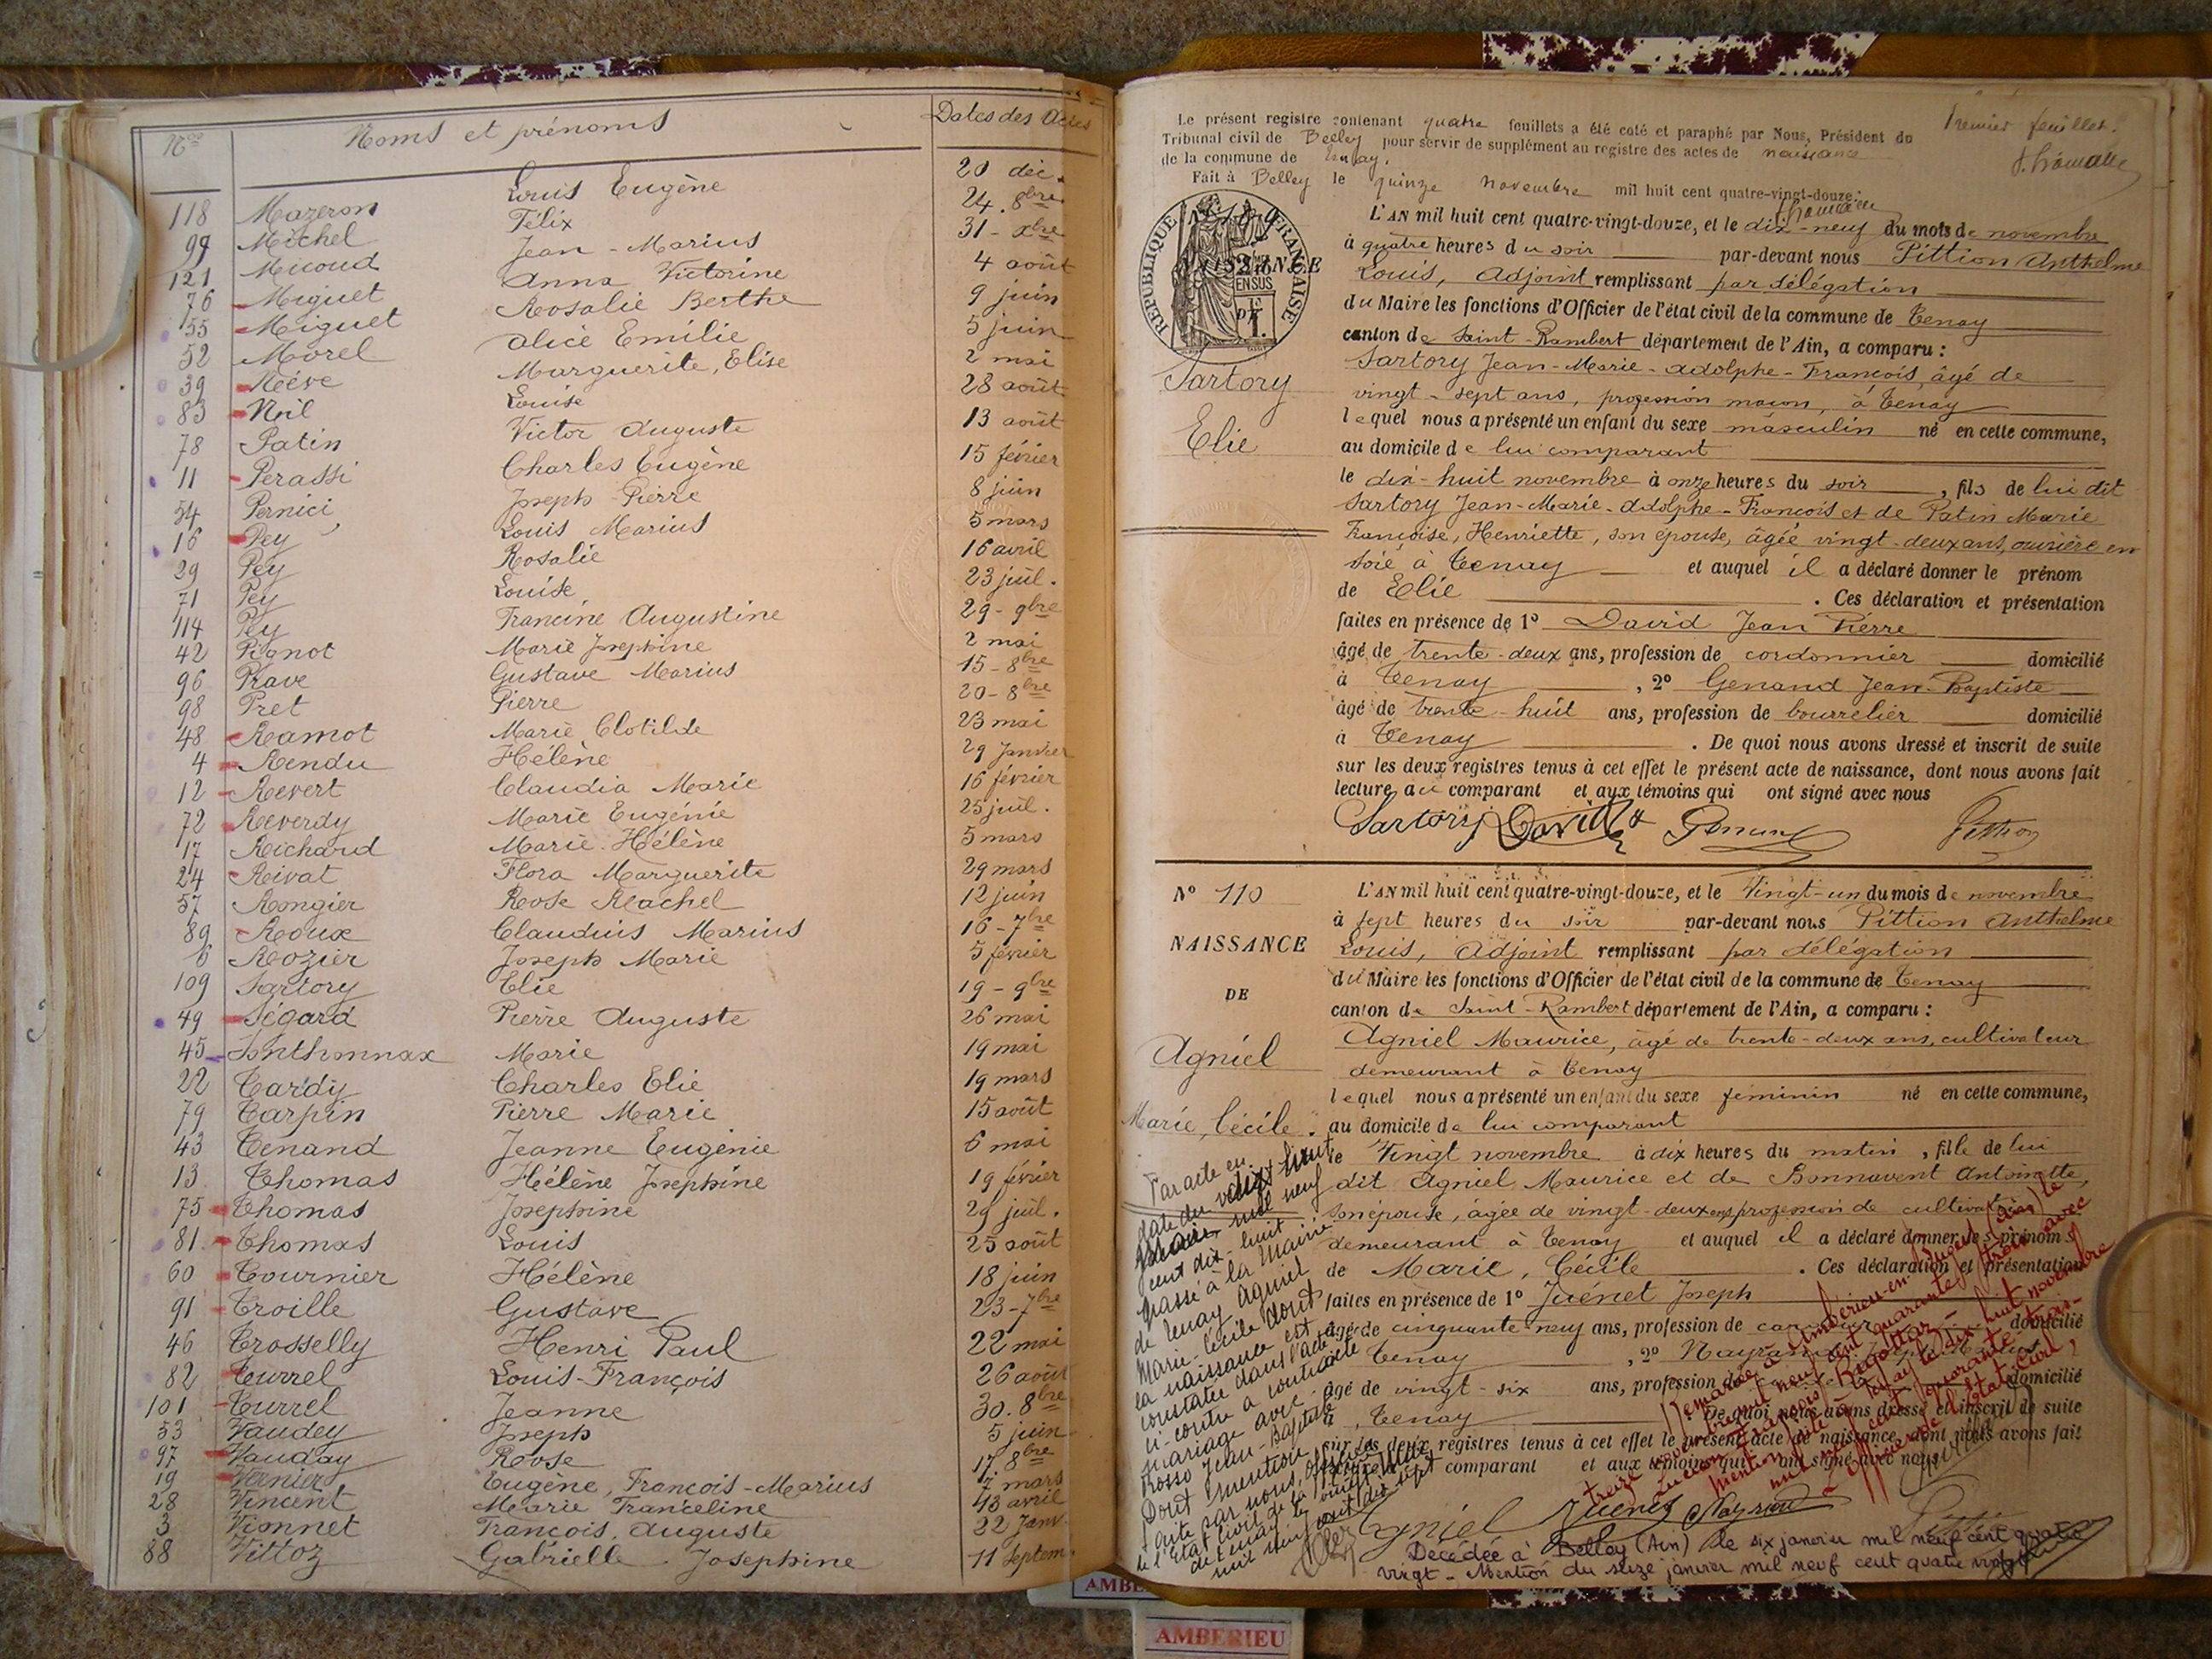 Nos Noms et prénoms Dates des Actes
118 Mazeron Louis Eugène 20 déc.
99 Michel Félix 24. 8bre
121 Micoud Jean-Marius 31 - xbre
76 Miguet Anna Victorine 4 août
55 Miguet Rosalie Berthe 9 juin
52 Morel Alice Emilie 5 juin
39 Nève Marguerite, Elise 2 mai
83 Noil Louise 28 août
78 Patin Victor Auguste 13 août
11 Perassi Charles Eugène 15 février
54 Pernici Joseph-Pierre 8 juin
16 Pey Louis Marius 5 mars
29 Pey Rosalie 16 avril
71 Pey Louise 23 juil.
114 Pey Francine Augustine 29 - 9bre
42 Pignot Marie Josephine 2 mai
96 Prave Gustave Marius 15 - 8bre
98 Pret Pierre 20 - 8bre
48 Ramot Marie Clotilde 23 mai
4 Rendu Hélène 29 Janvier
12 Revert Claudia Marie 16 février
72 Reverdy Marie Eugénie 25 juil.
17 Richard Marie-Hélène 5 mars
24 Rivat Flora Marguerite 29 mars
57 Rongier Rose Rachel 12 juin
89 Roux Claudius Marius 16 - 7bre
6 Rozier Joseph Marie 5 février
109 Sartory Elie 19 - 9bre
49 Segard Pierre Auguste 26 mai
45 Sonthonnax Marie 19 mai
22 Tardy Charles Elie 19 mars
79 Tarpin Pierre Marie 15 août
43 Tenand Jeanne Eugénie 6 mai
13 Thomas Hélène Josephine 19 février
75 Thomas Josephine 29 juil.
81 Thomas Louis 25 août
60 Tournier Hélène 18 juin
91 Troille Gustave 23 - 7bre
46 Trosselly Henri Paul 22 mai
82 Turrel Louis-François 26 août
101 Turrel Jeanne 30. 8bre
53 Vaudey Joseph 5 juin
97 Vauday Rose 17 8bre
19 Vernier Eugène, François-Marius 7 mars
28 Vincent Marie Franceline 13 avril
3 Vionnet François, Auguste 22 Janv.
88 Vittoz Gabrielle Josephine 11 Septem.
Premier feuillet.
Le présent registre contenant quatre feuillets a été coté et paraphé par Nous, Président du
Tribunal civil de Belley pour servir de supplément au registre des actes de naissance
de la commune de Tenay.
Fait à Belley le quinze novembre mil huit cent quatre-vingt-douze.
RÉPUBLIQUE FRANÇAISE
NAISSANCE
DE
Sartory
Elie
L'AN mil huit cent quatre-vingt-douze, et le dix-neuf du mois de novembre
à quatre heures du soir par-devant nous Pittion Anthelme
Louis, Adjoint remplissant par délégation
du Maire les fonctions d'Officier de l'état civil de la commune de Tenay
canton de Saint-Rambert département de l'Ain, a comparu :
Sartory Jean-Marie-Adolphe-François, âgé de
vingt-sept ans, profession maçon, à Tenay
lequel nous a présenté un enfant du sexe masculin né en cette commune,
au domicile de lui comparant
le dix-huit novembre à onze heures du soir, fils de lui dit
Sartory Jean-Marie-Adolphe-François et de Patin Marie
Françoise, Henriette, son épouse, âgée vingt-deux ans, ouvrière en
soie à Tenay et auquel il a déclaré donner le prénom
de Elie. Ces déclaration et présentation
faites en présence de 1º David Jean Pierre
âgé de trente-deux ans, profession de cordonnier domicilié
à Tenay, 2º Genand Jean-Baptiste
âgé de trente-huit ans, profession de bourrelier domicilié
à Tenay. De quoi nous avons dressé et inscrit de suite
sur les deux registres tenus à cet effet le présent acte de naissance, dont nous avons fait
lecture au comparant et aux témoins qui ont signé avec nous
Sartory David Genand Pittion
Nº 110
NAISSANCE
DE
Agniel
Marie, Cécile.
L'AN mil huit cent quatre-vingt-douze, et le Vingt-un du mois de novembre
à sept heures du soir par-devant nous Pittion Anthelme
Louis, Adjoint remplissant par délégation
du Maire les fonctions d'Officier de l'état civil de la commune de Tenay
canton de Saint-Rambert département de l'Ain, a comparu :
Agniel Maurice, âgé de trente-deux ans, cultivateur
demeurant à Tenay
lequel nous a présenté un enfant du sexe féminin né en cette commune,
au domicile de lui comparant
le Vingt novembre à dix heures du matin, fille de lui
dit Agniel Maurice et de Bonnavent Antoinette,
son épouse, âgée de vingt-deux ans, profession de
demeurant à Tenay et auquel il a déclaré donner les prénoms
de Marie, Cécile. Ces déclaration et présentation
faites en présence de 1º Juénet Joseph
âgé de cinquante neuf ans, profession de domicilié
à Tenay, 2º
âgé de vingt-six ans, profession de domicilié
à Tenay De quoi nous avons dressé et inscrit de suite
sur les deux registres tenus à cet effet le présent acte de naissance, dont nous avons fait
comparant et aux témoins qui ont signé avec nous
Agniel Juénet
Par acte en
date du vingt huit
mil neuf
cent dix-huit
passé à la Mairie
de Tenay Agniel
Marie-Cécile dont
la naissance est
constatée dans l'acte
ci-contre a contracté
mariage avec
Rosso Jean-Baptiste
Dont mention
faite par nous, officier
de l'Etat civil de la
de Tenay le
mil neuf cent dix sept
Remariée à Ambérieu-en-Bugey (Ain) le
treize novembre mil neuf cent quarante trois avec
Mention faite à Tenay le dix huit novembre
mil neuf cent quarante trois
L'officier de l'état civil,
Décédée à Belley (Ain) le six janvier mil neuf cent quatre
vingt - Mention du seize janvier mil neuf cent quatre vingt
AMBERIEU